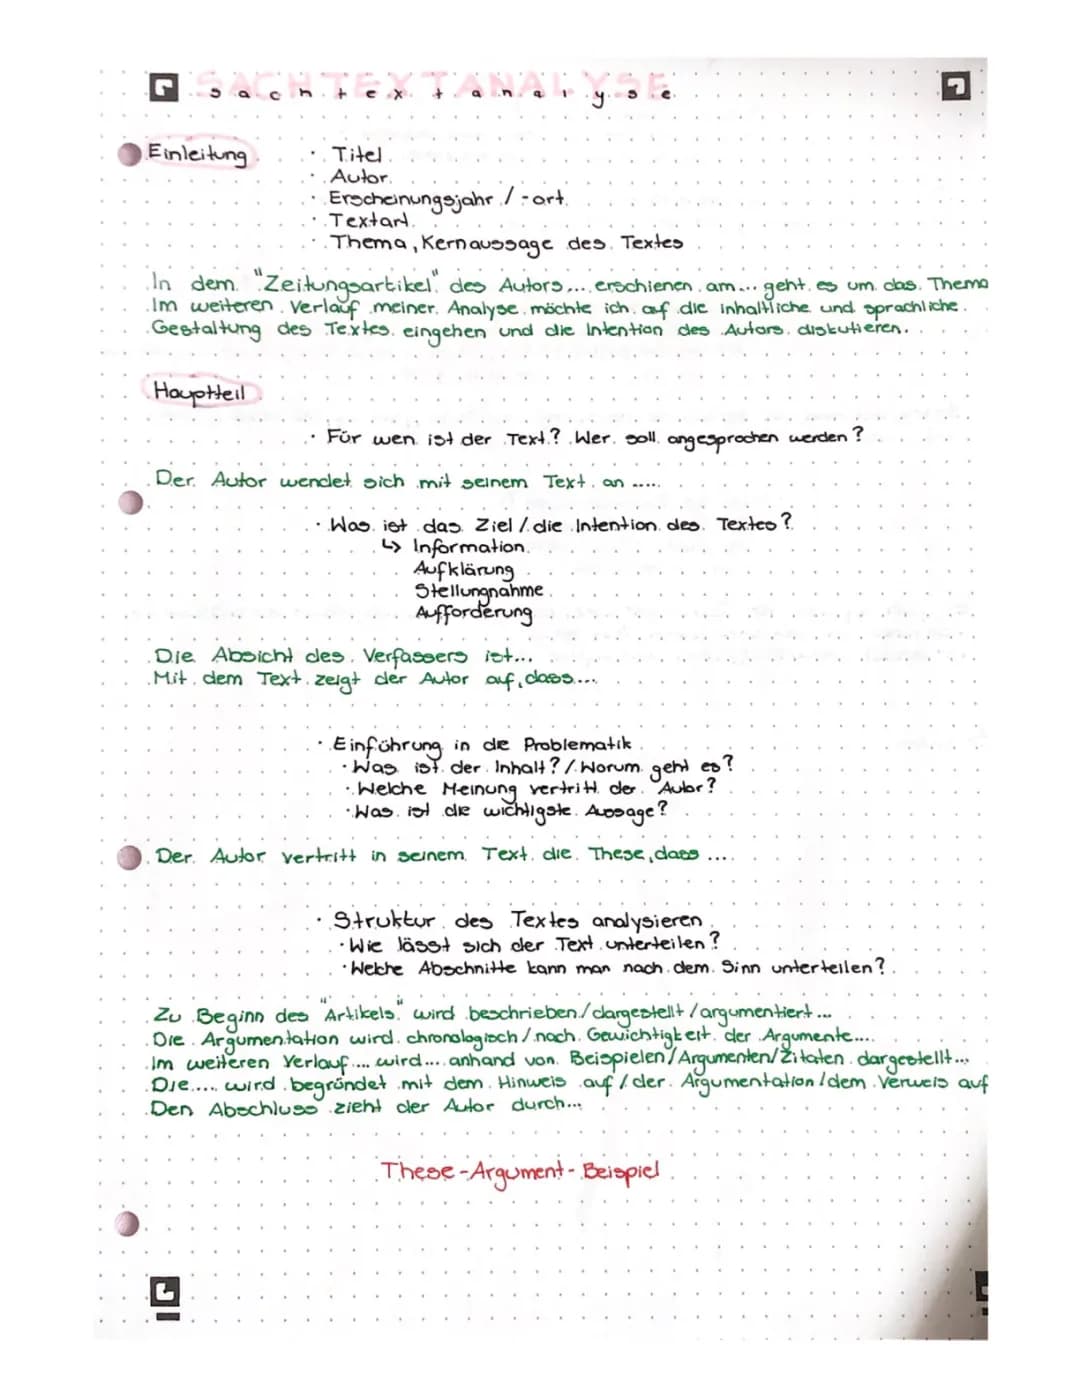 SACHTEXTANALYSE
sachtextanalyse
Einleitung
· Titel
· Autor
· Erscheinungsjahr / -ort
· Textart
· Thema, Kernaussage des Textes
In dem "Zeitungsartikel" des Autors ... erschienen am ... geht es um das Thema
Im weiteren Verlauf meiner Analyse möchte ich auf die inhaltliche und sprachliche
Gestaltung des Textes eingehen und die Intention des Autors diskutieren.
Hauptteil
· Für wen ist der Text? Wer soll angesprochen werden?
Der Autor wendet sich mit seinem Text an .....
· Was ist das Ziel / die Intention des Textes?
↳ Information
Aufklärung
Stellungnahme
Aufforderung
Die Absicht des Verfassers ist...
Mit dem Text zeigt der Autor auf, dass...
· Einführung in die Problematik
· Was ist der Inhalt? / Worum geht es?
· Welche Meinung vertritt der Autor?
· Was ist die wichtigste Aussage?
Der Autor vertritt in seinem Text die These, dass ...
· Struktur des Textes analysieren
· Wie lässt sich der Text unterteilen?
· Welche Abschnitte kann man nach dem Sinn unterteilen?
Zu Beginn des "Artikels" wird beschrieben/dargestellt/argumentiert ...
Die Argumentation wird chronologisch / nach Gewichtigkeit der Argumente....
Im weiteren Verlauf .... wird .... anhand von Beispielen/Argumenten/Zitaten dargestellt...
Die .... wird begründet mit dem Hinweis auf / der Argumentation / dem Verweis auf
Den Abschluss zieht der Autor durch...
These - Argument - Beispiel